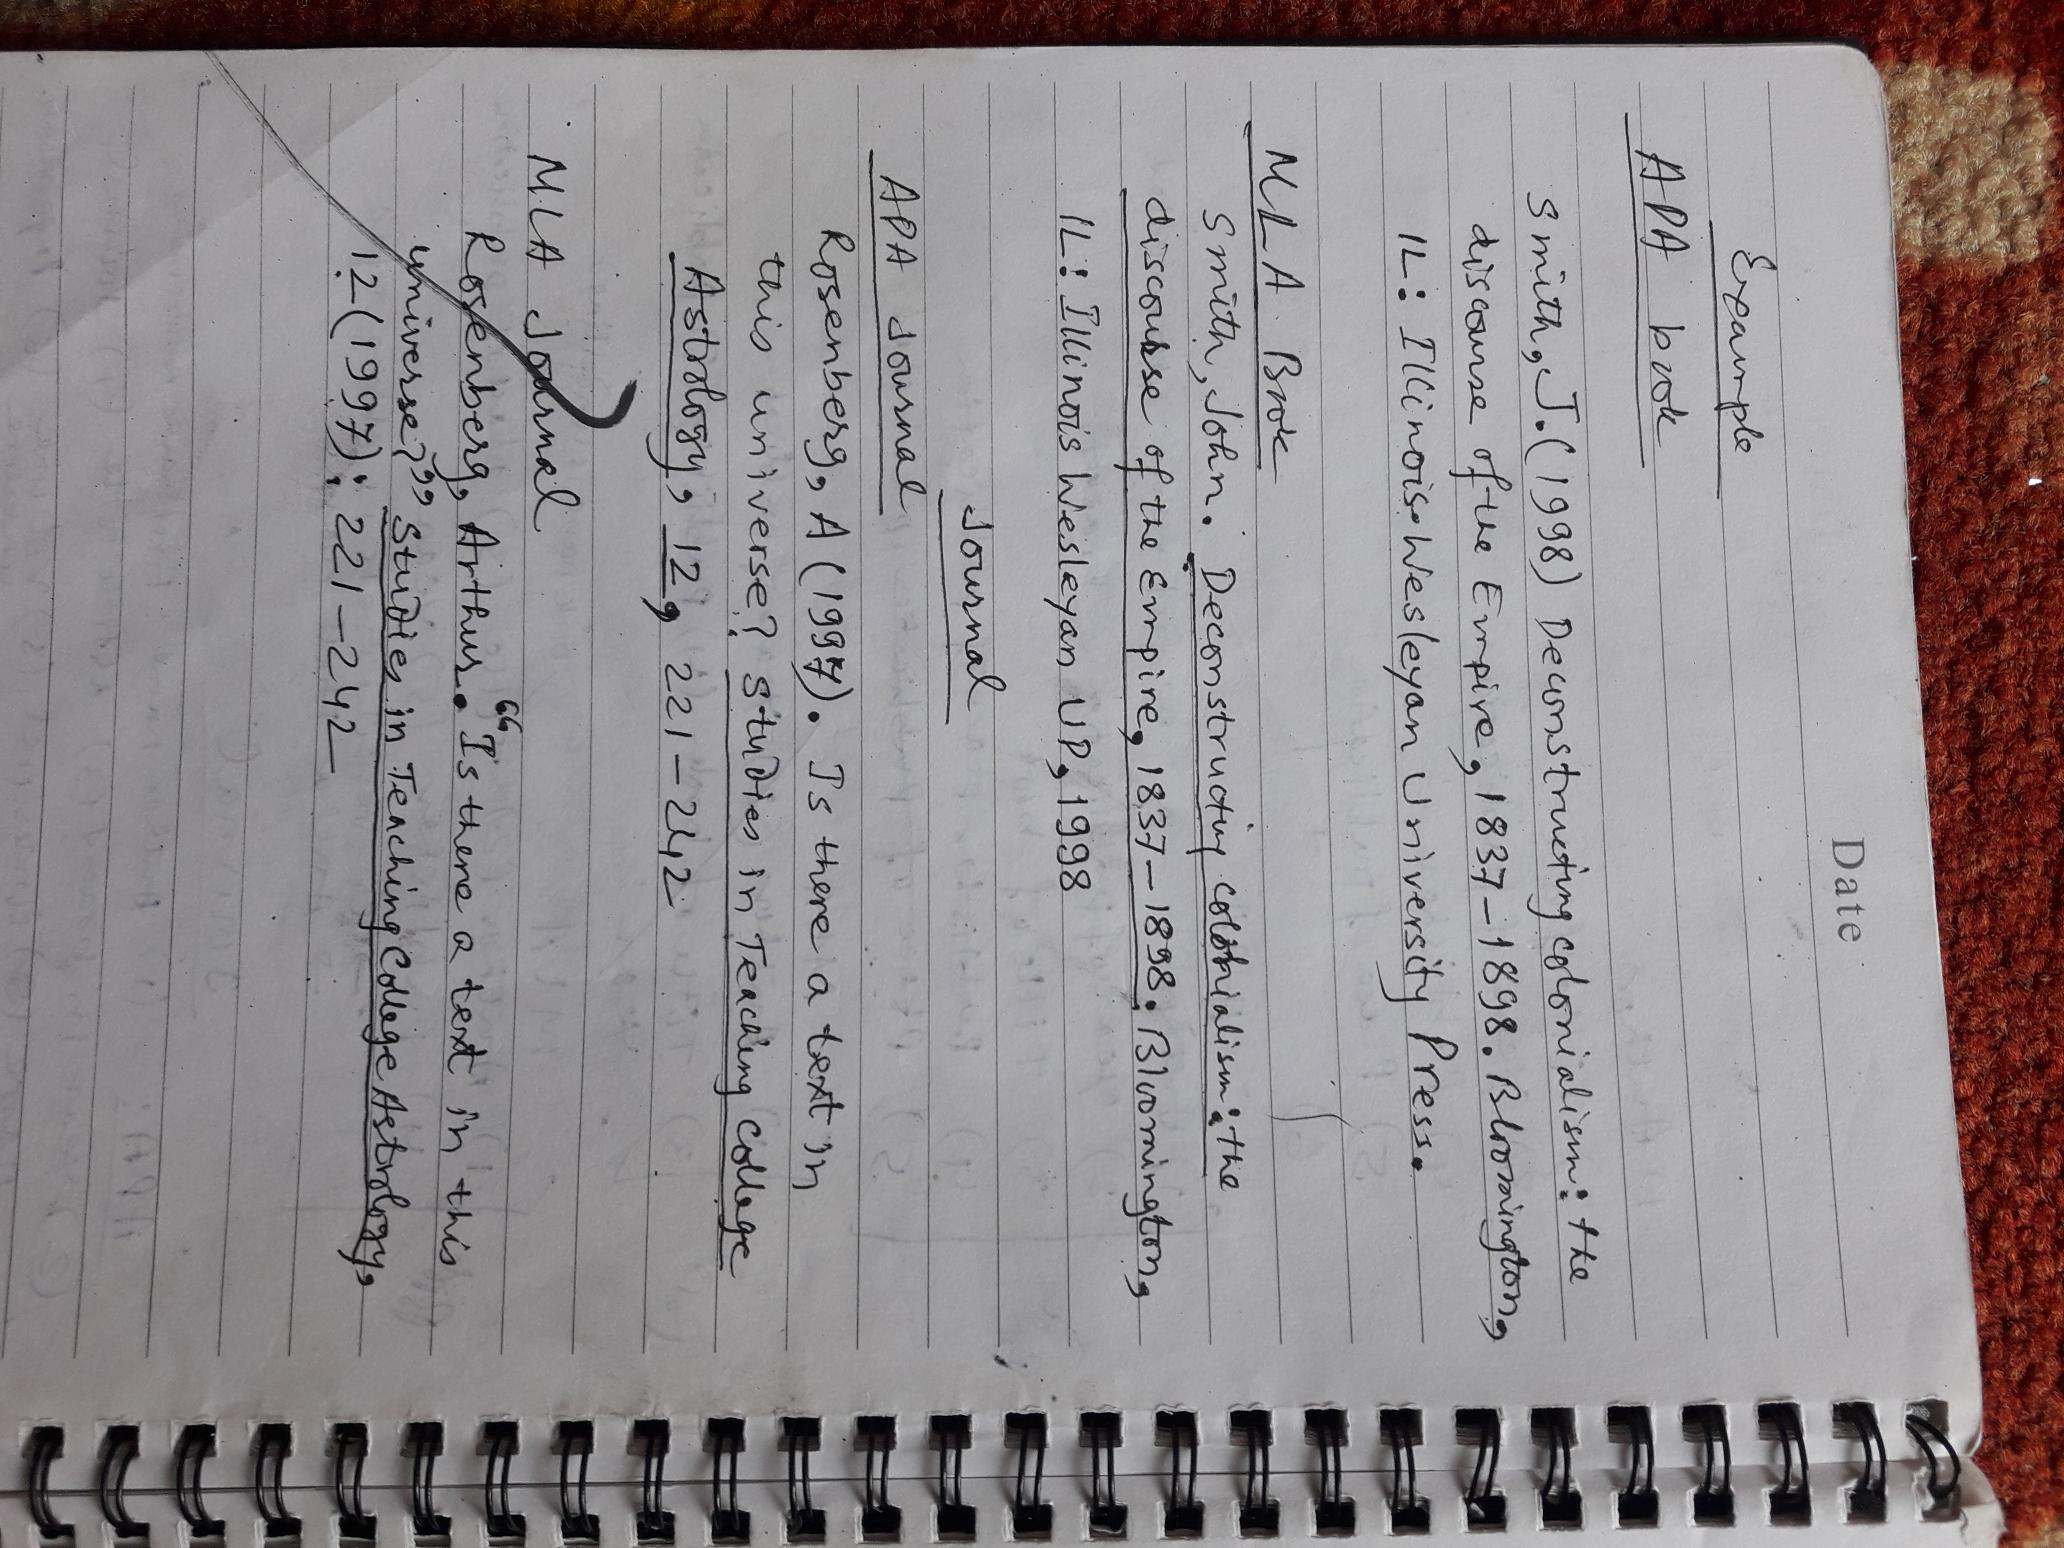 Date
Example
APA book
Smith, J. (1998) Deconstructing colonialism: the
discourse of the Empire, 1837–1898. Bloomington,
IL: Illinois Wesleyan University Press.
MLA Book
Smith, John. Deconstructing colonialism: the
discourse of the Empire, 1837–1898. Bloomington,
IL: Illinois Wesleyan UP, 1998
Journal
APA Journal
Rosenberg, A (1997). Is there a text in
this universe? Studies in Teaching College
Astrology, 12, 221–242
MLA Journal
Rosenberg, Arthur. “Is there a text in this
universe?” Studies in Teaching College Astrology,
12 (1997): 221–242